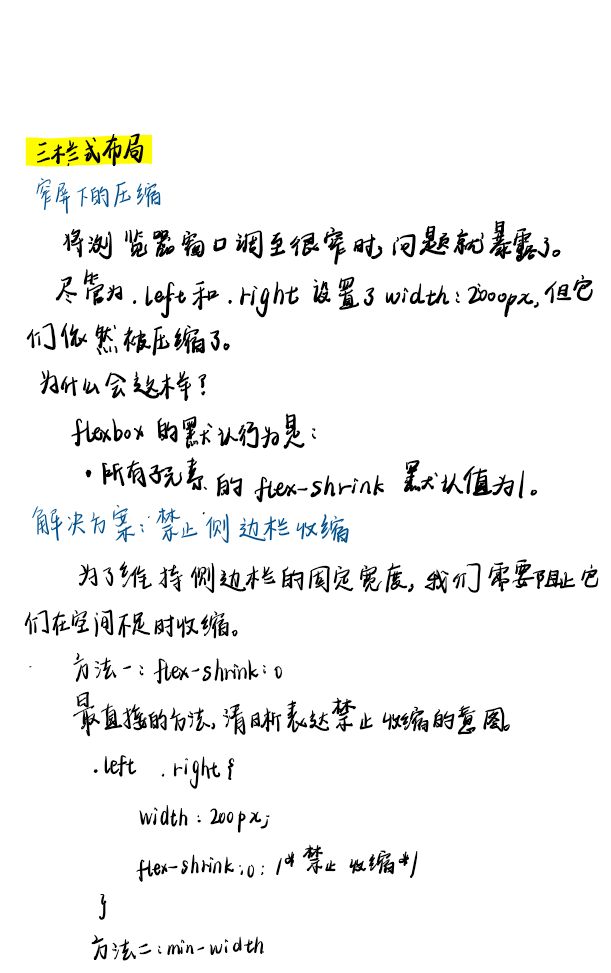 三栏式布局
窄屏下的压缩
将浏览器窗口调至很窄时,问题就暴露了。
尽管为.left和.right设置了width:2000px,但它
们依然被压缩了。
为什么会这样?
flexbox的默认行为是:
·所有子元素的flex-shrink默认值为1。
解决方案:禁止侧边栏收缩
为了维持侧边栏的固定宽度,我们需要阻止它
们在空间不足时收缩。
方法一:flex-shrink:0
最直接的方法,清晰表达禁止收缩的意图。
.left .right{
width:200px;
flex-shrink:0; /*禁止收缩*/
}
方法二:min-width